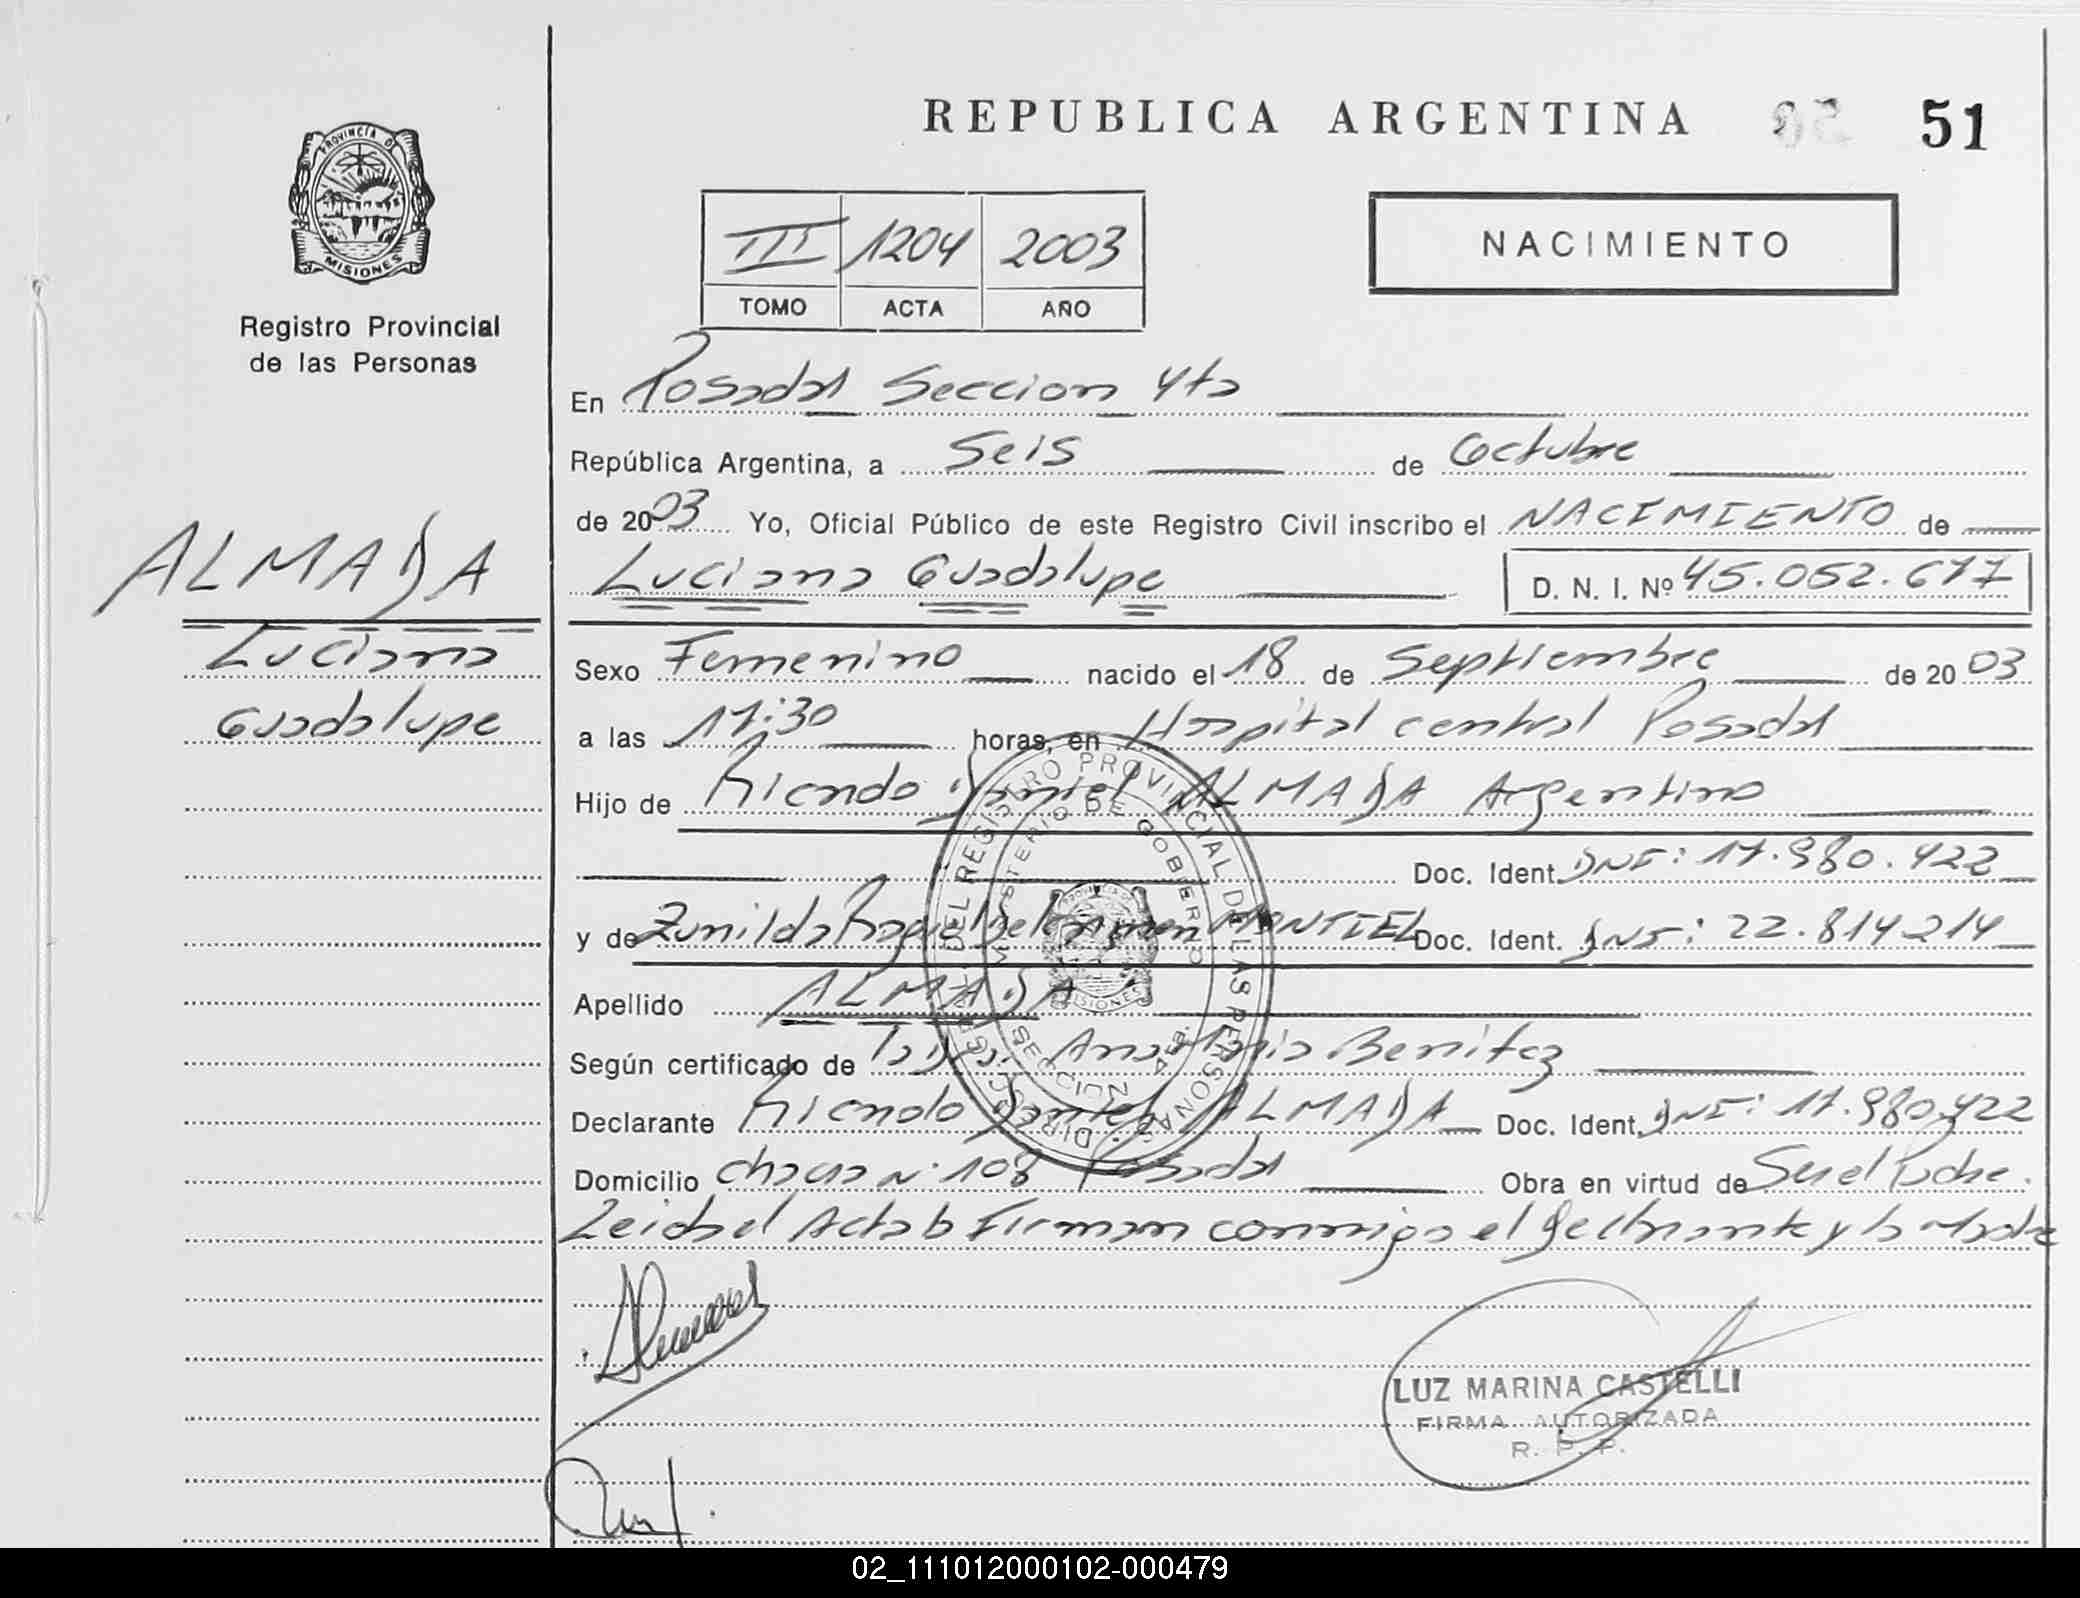 REPUBLICA ARGENTINA 51
PROVINCIA D
MISIONES
Registro Provincial
de las Personas
III 1204 2003
TOMO ACTA AÑO
NACIMIENTO
En Posadas Seccion 4ta
República Argentina, a Seis de Octubre
de 2003 Yo, Oficial Público de este Registro Civil inscribo el NACIMIENTO de
ALMADA
Luciana Guadalupe D. N. I. Nº 45.052.677
Luciana
Guadalupe
Sexo Femenino nacido el 18 de Septiembre de 2003
a las 17:30 horas, en Hospital central Posadas
Hijo de Ricardo Daniel ALMADA Argentino
Doc. Ident. DNI: 17.980.422
y de Zunilda Raquel del Carmen MONTIEL Doc. Ident. DNI: 22.814214
Apellido ALMADA
Según certificado de Benitez
Declarante Ricardo Daniel ALMADA Doc. Ident. DNI: 17.980.422
Domicilio chacra Nº 108 Posadas Obra en virtud de Ser el Padre.
Leida el Acta la Firman conmigo el declarante y la Madre
DIRECC. GRAL. DEL REGISTRO PROVINCIAL DE LAS PERSONAS
MINISTERIO DE GOBIERNO
SECCION 4ta.
MISIONES
LUZ MARINA CASTELLI
FIRMA AUTORIZADA
R. P. P.
02_111012000102-000479